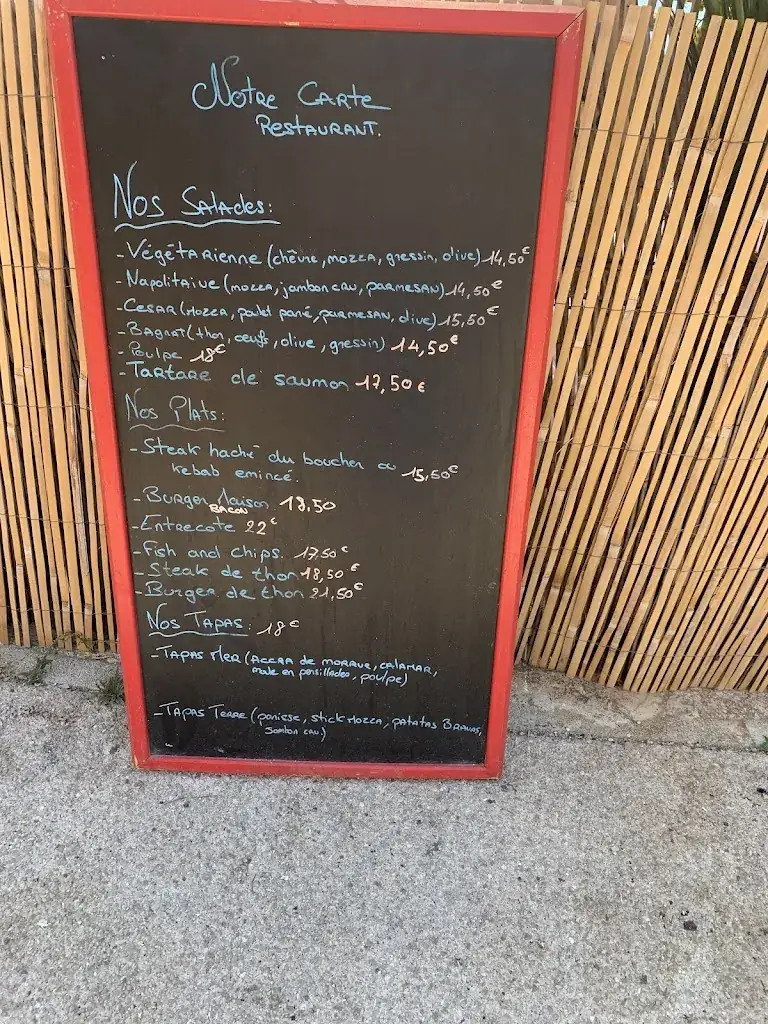 Notre Carte
Restaurant.
Nos Salades:
- Végétarienne (chèvre, mozza, gressin, olive) 14,50€
- Napolitaine (mozza, jambon cru, parmesan) 14,50€
- Cesar (Mozza, poulet pané, parmesan, olive) 15,50€
- Bagnat (thon, oeufs, olive, gressin) 14,50€
- Poulpe 18€
- Tartare de saumon 17,50€
Nos Plats:
- Steak haché du boucher ou 15,50€
kebab emincé.
- Burger Maison 18,50
BACON
- Entrecote 22€
- Fish and chips. 17,50€
- Steak de thon 18,50€
- Burger de thon 21,50€
Nos Tapas: 18€
- Tapas Mer (Accra de morrue, calamar,
moule en persillades, poulpe)
- Tapas Terre (panisse, stick Mozza, patatas Bravas,
Jambon cru.)